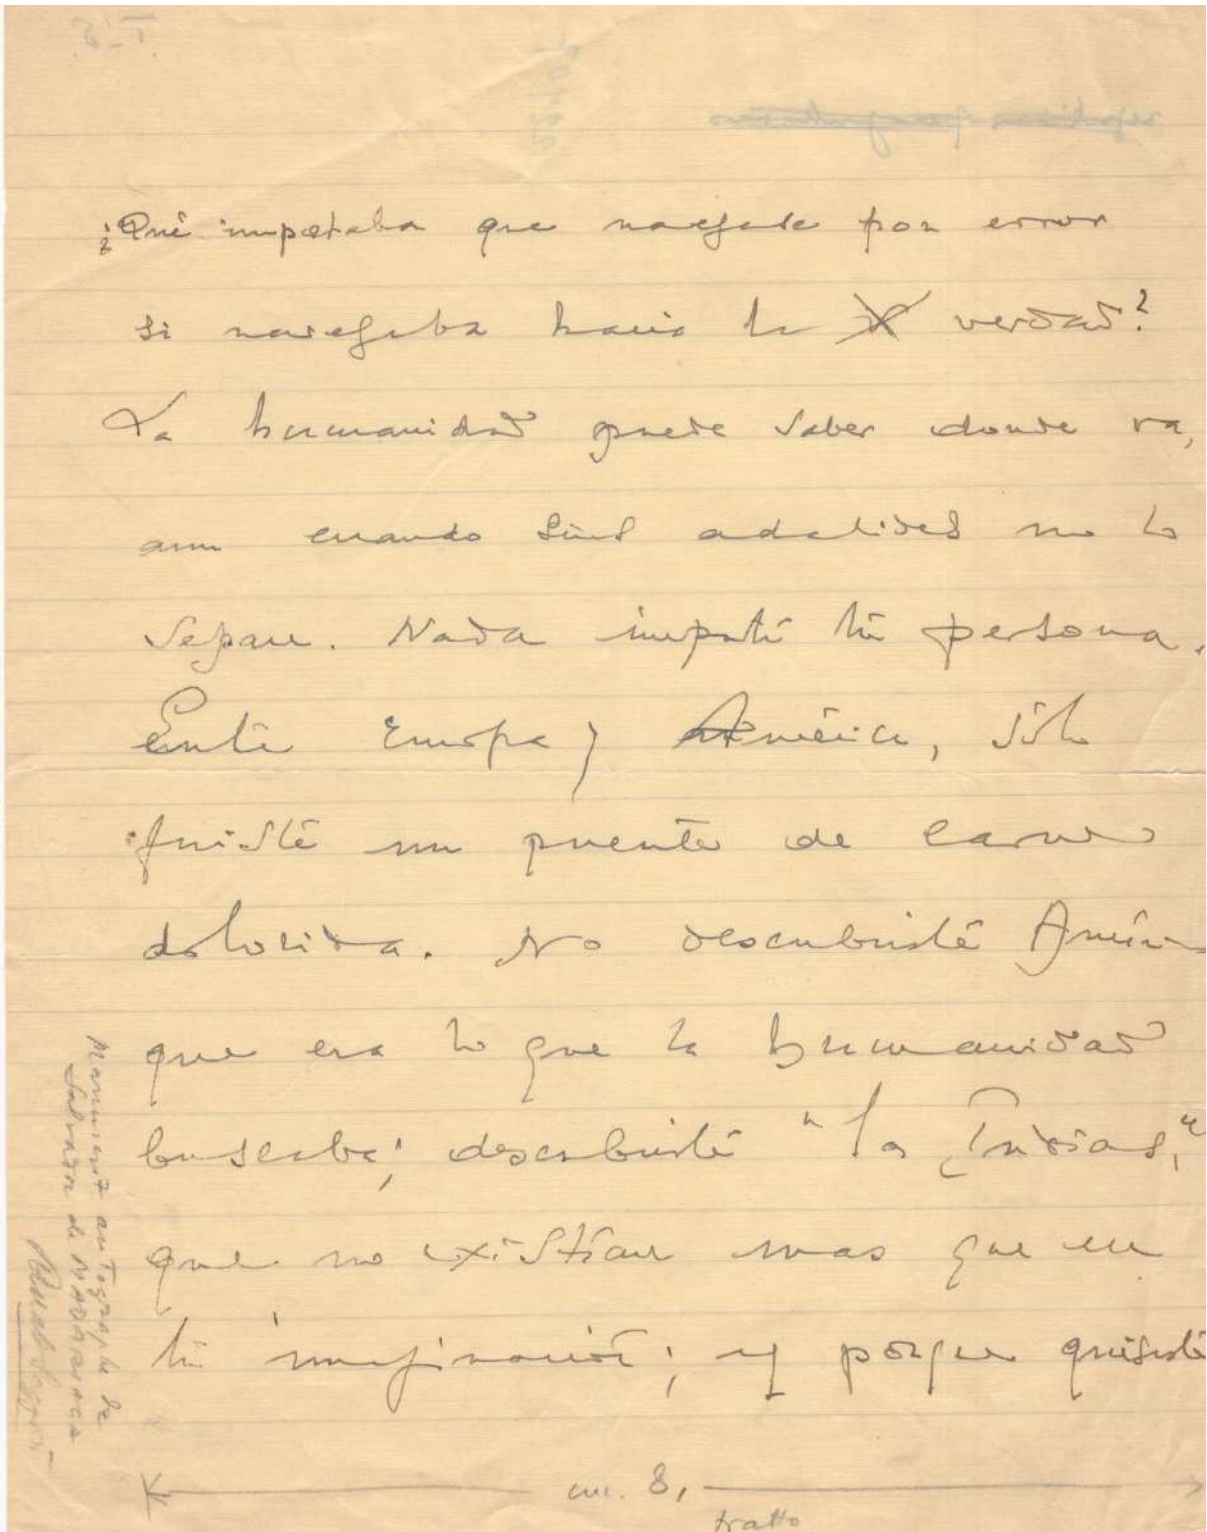 ¿Qué importaba que navegase por error
si navegaba hacia la verdad?
La humanidad puede saber donde va,
aun cuando sus adalides no lo
sepan. Nada importó tu persona.
Entre Europa y América, sólo
fuiste un puente de carne
dolorida. No descubriste América
que era lo que la humanidad
buscaba; descubriste "las Indias,"
que no existían mas que en
tu imaginación; y porque quisiste
cm. 8,
tratto
Manuscrit autographe de
Salvador de MADARIAGA